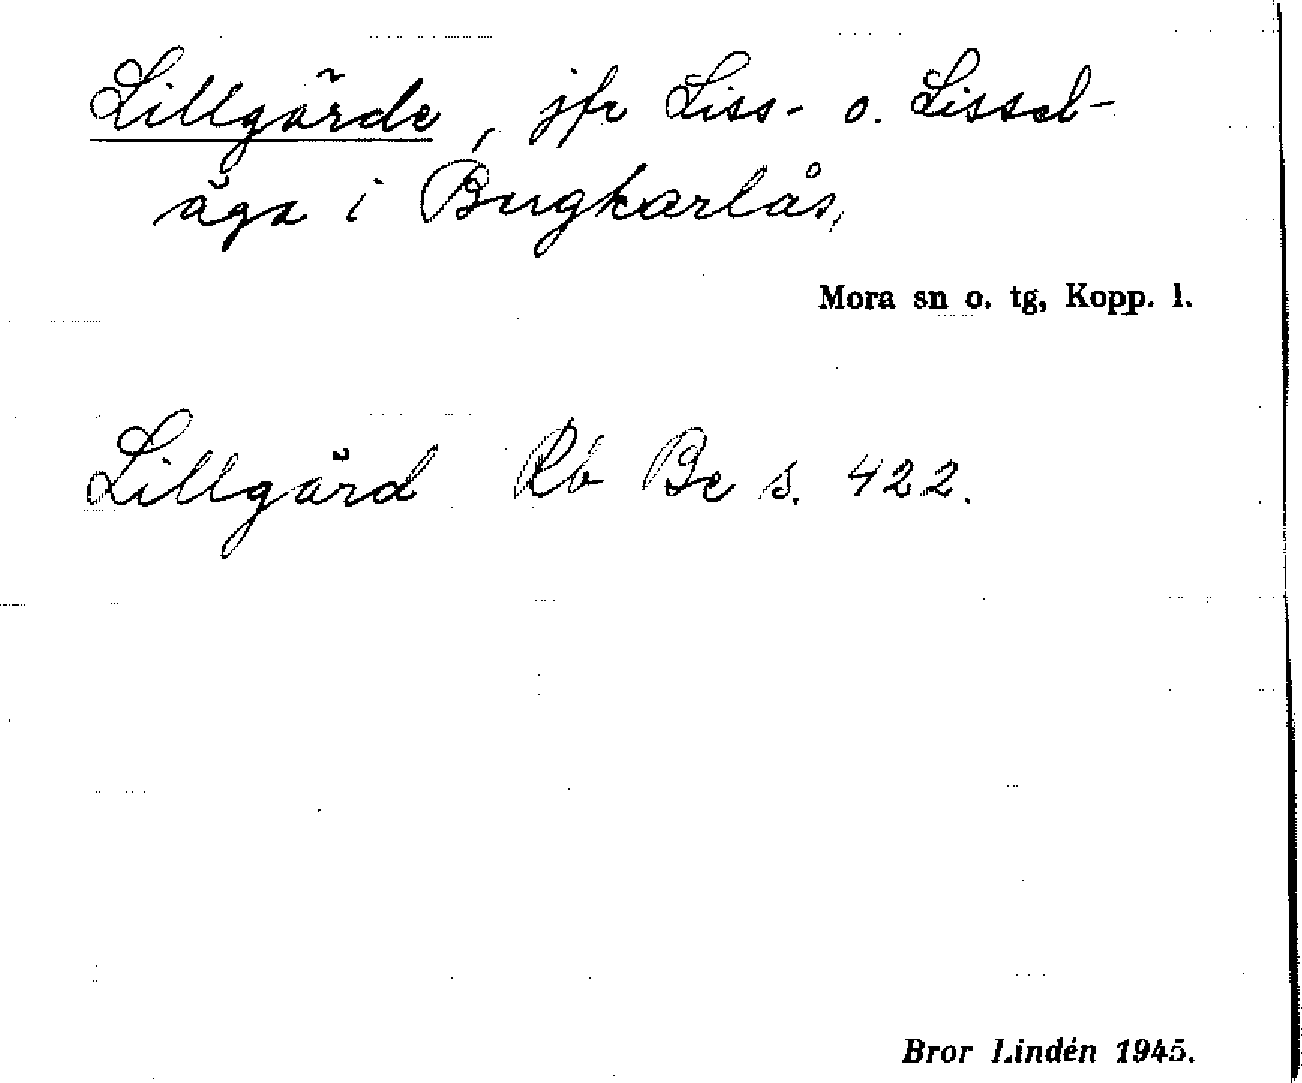 Lillgärde, jfr Liss- o. Lissel-
äga i Bugkarlås,
Mora sn o. tg, Kopp. l.
Lillgärd Rb Be s. 422.
Bror Lindén 1945.